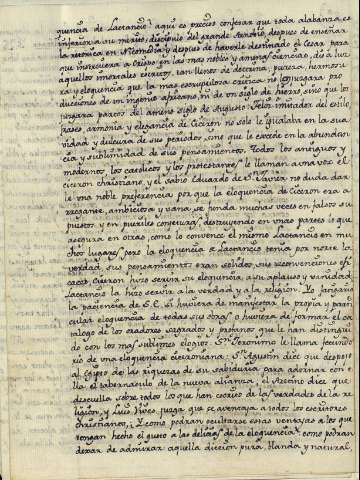 quencia de Lactancio? aqui es preciso confesar que toda alabanza es
inferior a su merito; discipulo del grande Arnobio, despues de enseñar
la retorica en Nicomedia y despues de haverle destinado el Cesar para
que instruiera a Crispo en las mas nobles y amenas ciencias, dio a luz
aquellos inmortales escritos, tan llenos de decoro, pureza, hermosu
ra y eloquencia que la mas escrupulosa critica no los juzgara pro
ducciones de un ingenio africano, ni de un siglo de hierro, sino que los
juzgara partos del aureo siglo de Augusto. Feliz imitador del estilo,
frases, armonia y elegancia de Ciceron no solo le iguala en la sua
vidad y dulzura de sus periodos, sino que le excede en la abundancia
cia y sublimidad de sus pensamientos. Todos los antiguos y
modernos, los catolicos y los protestantes le llaman a una voz el
Ciceron christiano, y el sabio Eduardo de no duda dar
le una noble preferencia por que la eloquencia de Ciceron era a
rrogante, ambiciosa y vana, se funda muchas veces en falsos su
puestos y en pueriles conjeturas, destruyendo en unas partes lo que
asegura en otras, como lo convence el mismo Lactancio en mu
chos lugares, pero la eloquencia de Lactancio tenia por norte la
verdad, sus pensamientos eran solidos, sus reconvenciones efi
caces. Ciceron hizo servir su eloquencia a su aplauso y vanidad,
Lactancio la hizo servir a la verdad y a la religion. Yo cansaria
la paciencia de S.E. si huviera de manifestar la propia y parti
cular eloquencia de todas sus obras o huviera de formar el ca
talogo de los oradores sagrados y profanos que le han distingui
do con los mas sublimes elogios. Sn. Jeronimo le llama fecundo
rio de una eloquencia ciceroniana: Sn. Agustin dice que despojo
al Egipto de las riquezas de su sabiduria para adornar con e
lla el tabernaculo de la nueva alianza, el dice que
descuella sobre todos los que han escrito de las verdades de la re
ligion, y Luis Vives juzga que se aventaja a todos los escritores
christianos, ¿Y como podran ocultarse estas ventajas a los que
tengan hecho el gusto a las delicias de la eloquencia? como podran
dexar de admirar aquella diccion pura, blanda y natural,